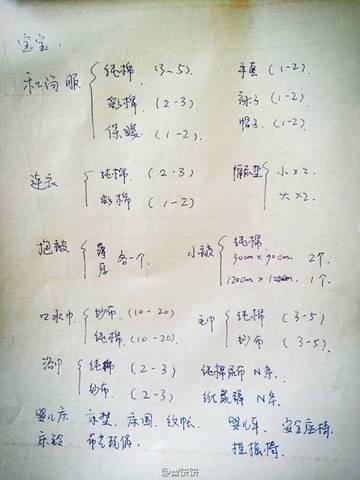 宝宝:
和尚服 { 纯棉 (3-5). 手套 (1-2)
彩棉 (2-3) 袜子 (1-2)
保暖 (1-2) 帽子 (1-2).
连衣 { 纯棉 (2-3) 隔尿垫 { 小×2.
彩棉 (1-2) 大×2.
抱被 { 薄 厚 各一个. 小被 { 纯棉
90cm×90cm 2个.
120cm×120cm 1个.
口水巾 { 纱布 (10-20) 毛巾 { 纯棉 (3-5)
纯棉 (10-20) 纱布 (3-5).
浴巾 { 纯棉 (2-3) 纯棉尿布 N条.
纱布 (2-3) 纸尿裤 N条.
婴儿床 床垫. 床围. 蚊帐. 婴儿车. 安全座椅.
床铃 布老玩偶. 摇摇椅.
@当饼饼